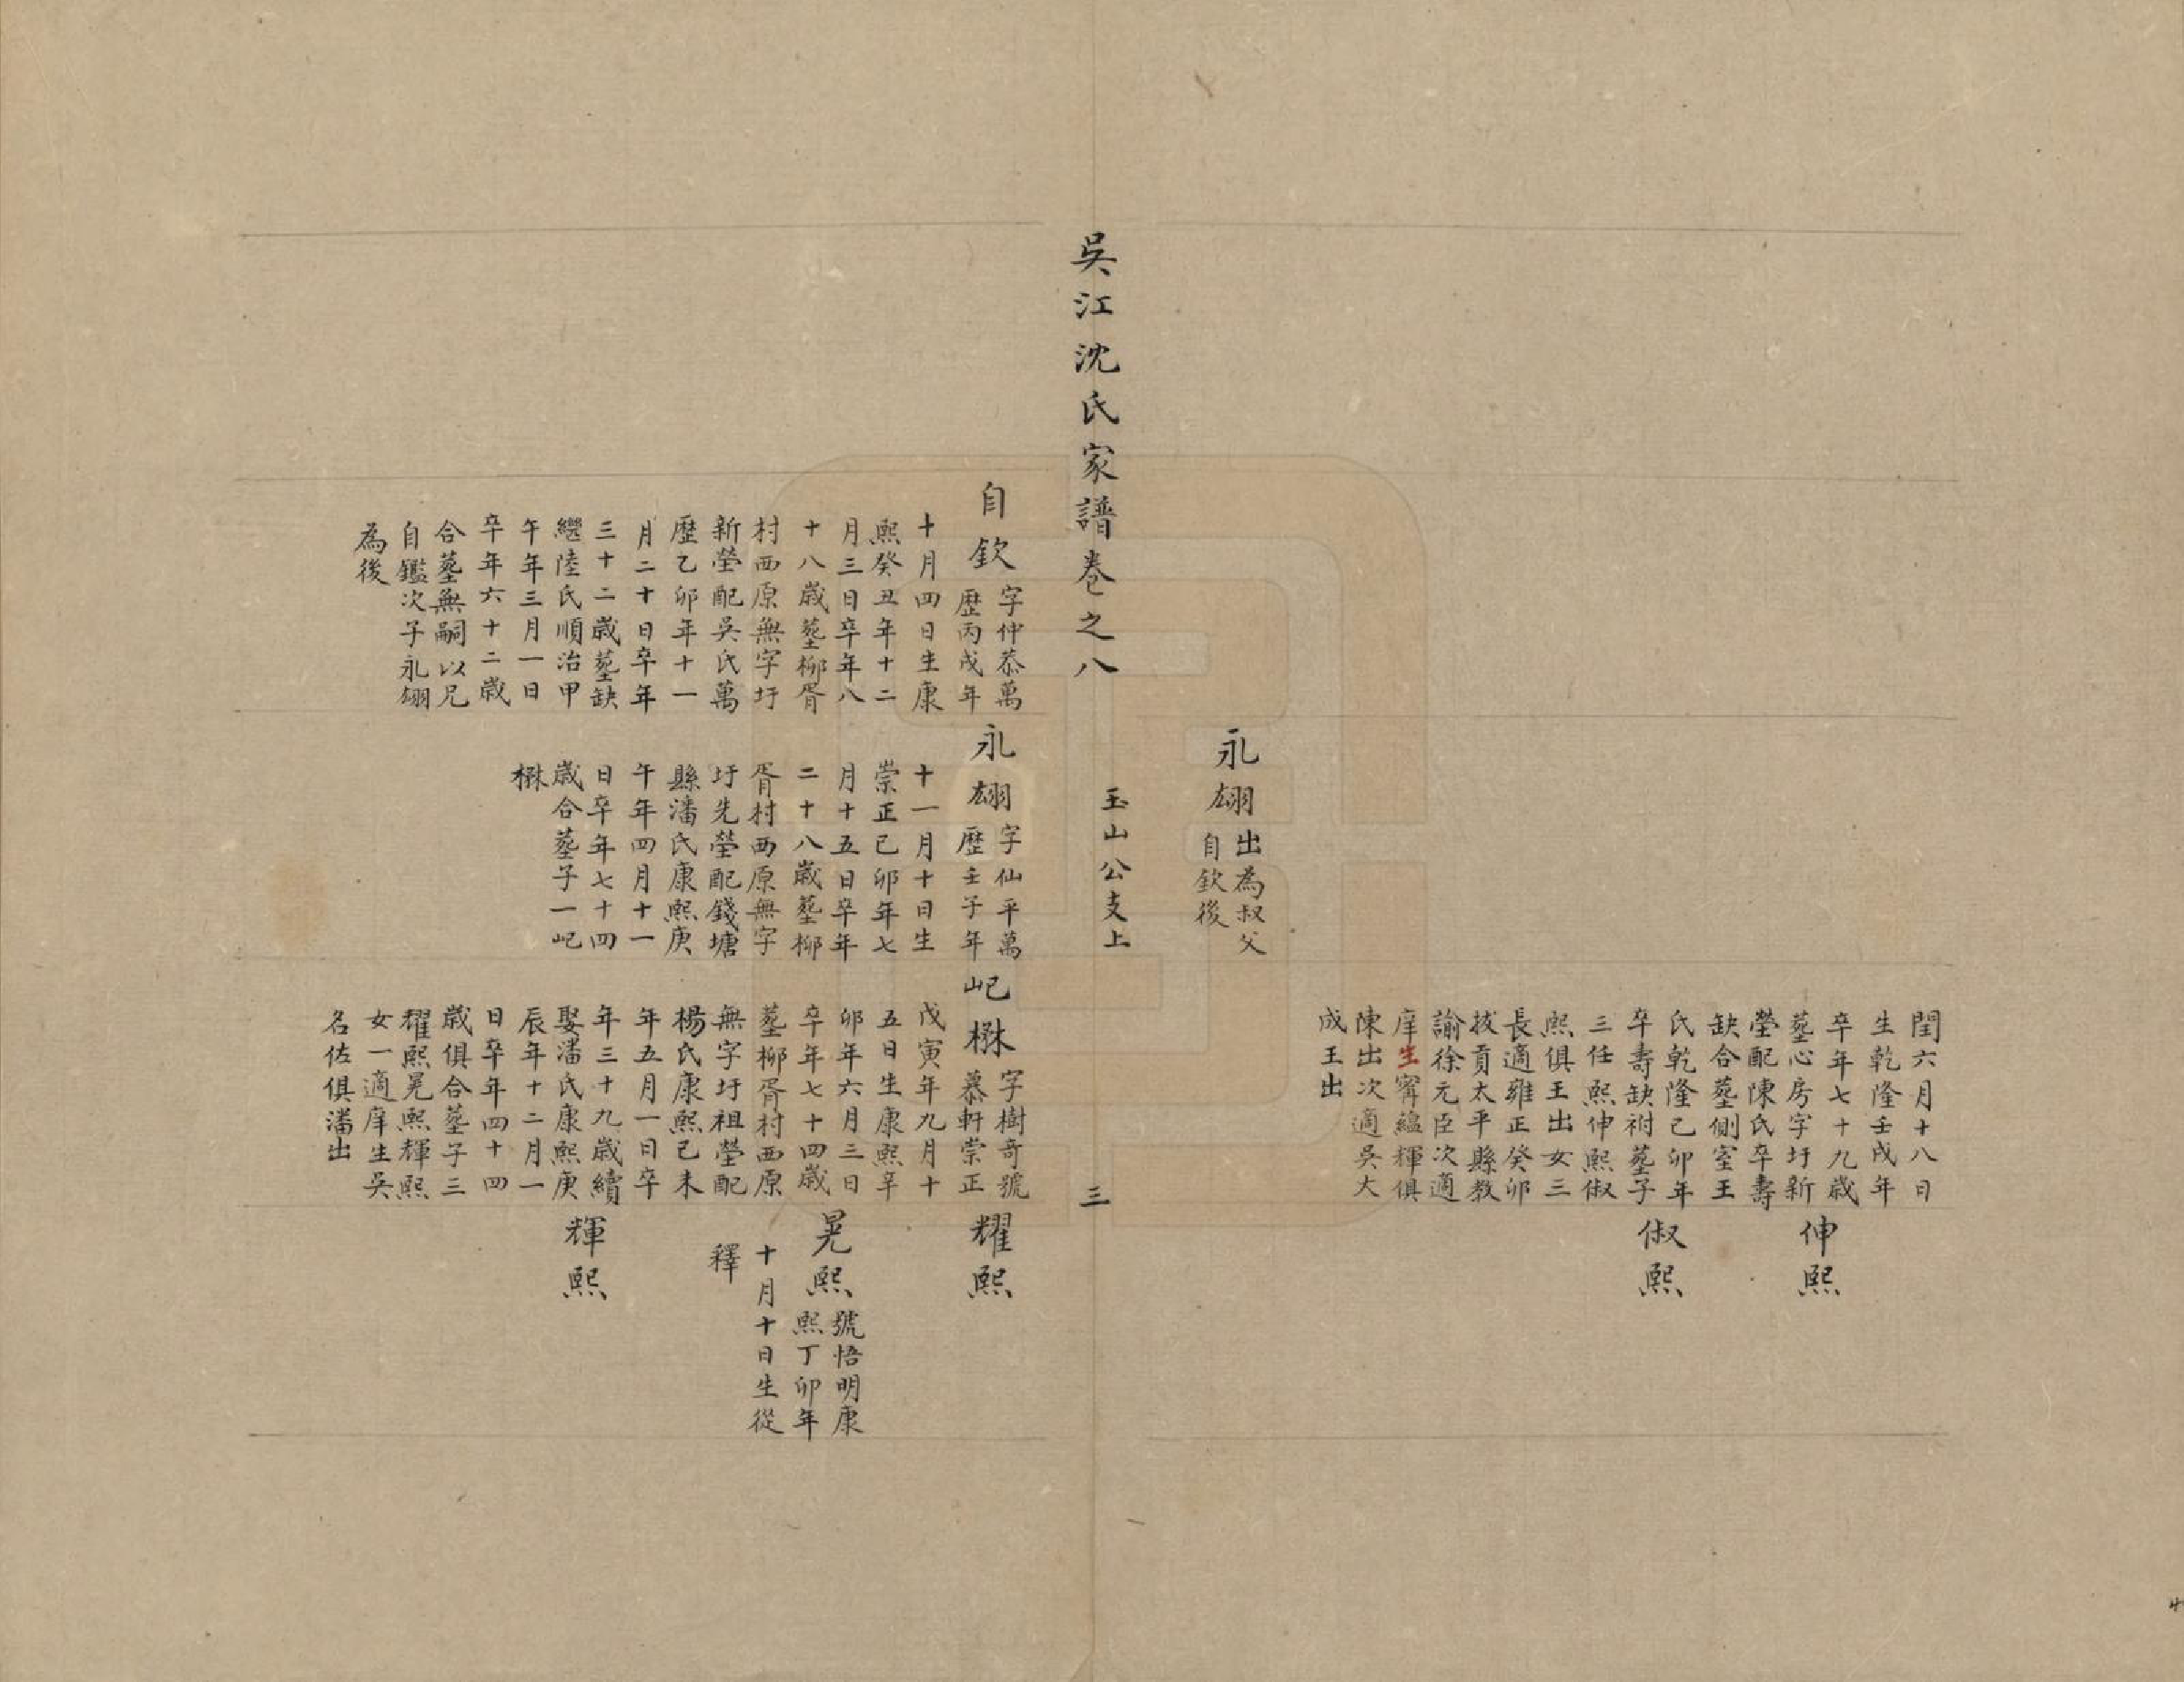 永翃
出為叔父
自欽後
閏六月十八日
生乾隆壬戌年
卒年七十九歲
塟心房字圩新
塋配陳氏卒壽
缺合塟側室王
氏乾隆己卯年
卒壽缺祔塟子
三任熙伸熙俶
熙俱王出女三
長適雍正癸卯
拔貢太平縣教
諭徐元臣次適
庠生甯緼輝俱
陳出次適吳大
成王出
伸熙
俶熙
吳江沈氏家譜卷之八
玉山公支上
三
自欽
字仲恭萬
歷丙戌年
十月四日生康
熙癸丑年十二
月三日卒年八
十八歲塟柳胥
村西原無字圩
新塋配吳氏萬
歷乙卯年十一
月二十日卒年
三十二歲塟缺
繼陸氏順治甲
午年三月一日
卒年六十二歲
合塟無嗣以兄
自鑑次子永翃
為後
永翃
字仙平萬
歷壬子年
十一月十日生
崇正己卯年七
月十五日卒年
二十八歲塟柳
胥村西原無字
圩先塋配錢塘
縣潘氏康熙庚
午年四月十一
日卒年七十四
歲合塟子一屺
楙
屺楙
字樹奇號
慕軒崇正
戊寅年九月十
五日生康熙辛
卯年六月三日
卒年七十四歲
塟柳胥村西原
無字圩祖塋配
楊氏康熙己未
年五月一日卒
年三十九歲續
娶潘氏康熙庚
辰年十二月一
日卒年四十四
歲俱合塟子三
耀熙晃熙輝熙
女一適庠生吳
名佐俱潘出
耀熙
晃熙
號悟明康
熙丁卯年
十月十日生從
釋
輝熙